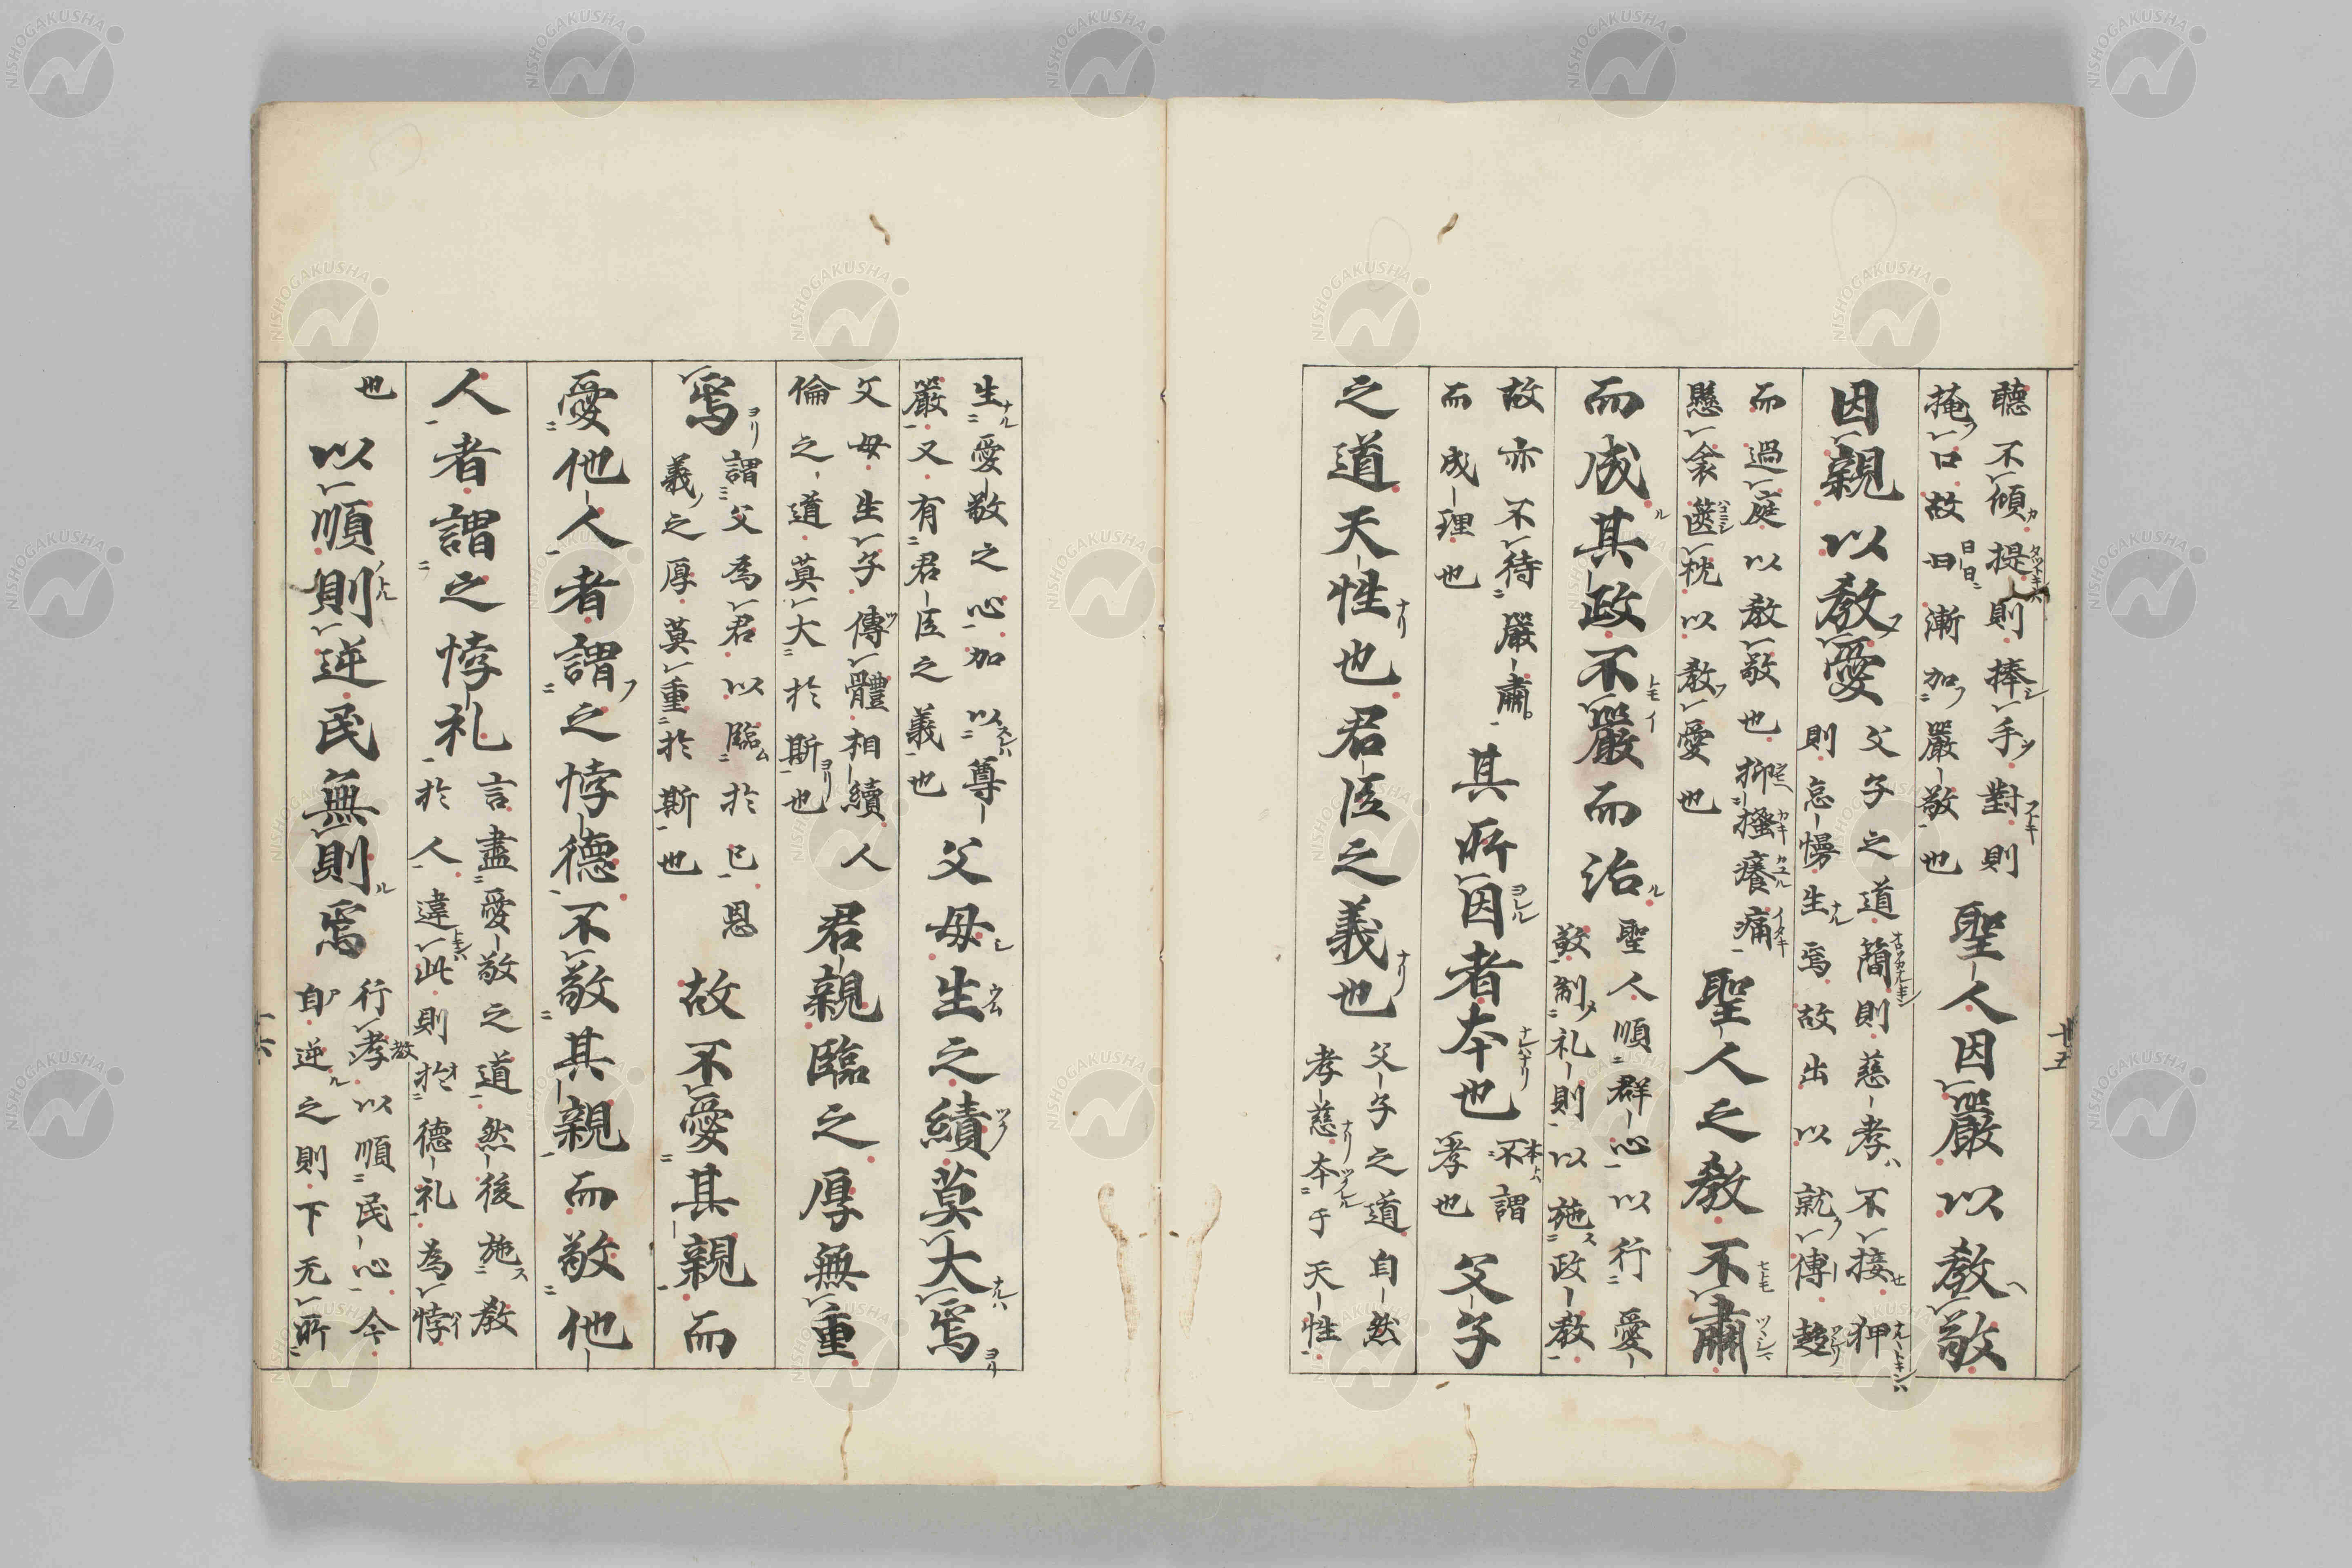 十五
聽不傾提則捧手對則
掩口故曰漸加嚴敬也
聖人因嚴以教敬
因親以教愛
父子之道簡則慈孝不接狎
則怠慢生焉故出以就傳趍
而過庭以教敬也抑搔癢痛
懸衾篋枕以教愛也
聖人之教不肅
而成其政不嚴而治
聖人順群心以行愛
敬制礼則以施政教
故亦不待嚴肅
而成理也
其所因者本也
不謂
孝也
父子
之道天性也君臣之義也
父子之道自然
孝慈本于天性
生愛敬之心加以尊
嚴又有君臣之義也
父母生之續莫大焉
父母生子傳體相續人
倫之道莫大於斯也
君親臨之厚無重
焉
謂父為君以臨於己恩
義之厚莫重於斯也
故不愛其親而
愛他人者謂之悖德不敬其親而敬他
人者謂之悖礼
言盡愛敬之道然後施教
於人違此則於德礼為悖
也
以順則逆民無則焉
行孝以順民心今
自逆之則下无所
十六
NISHOGAKUSHA